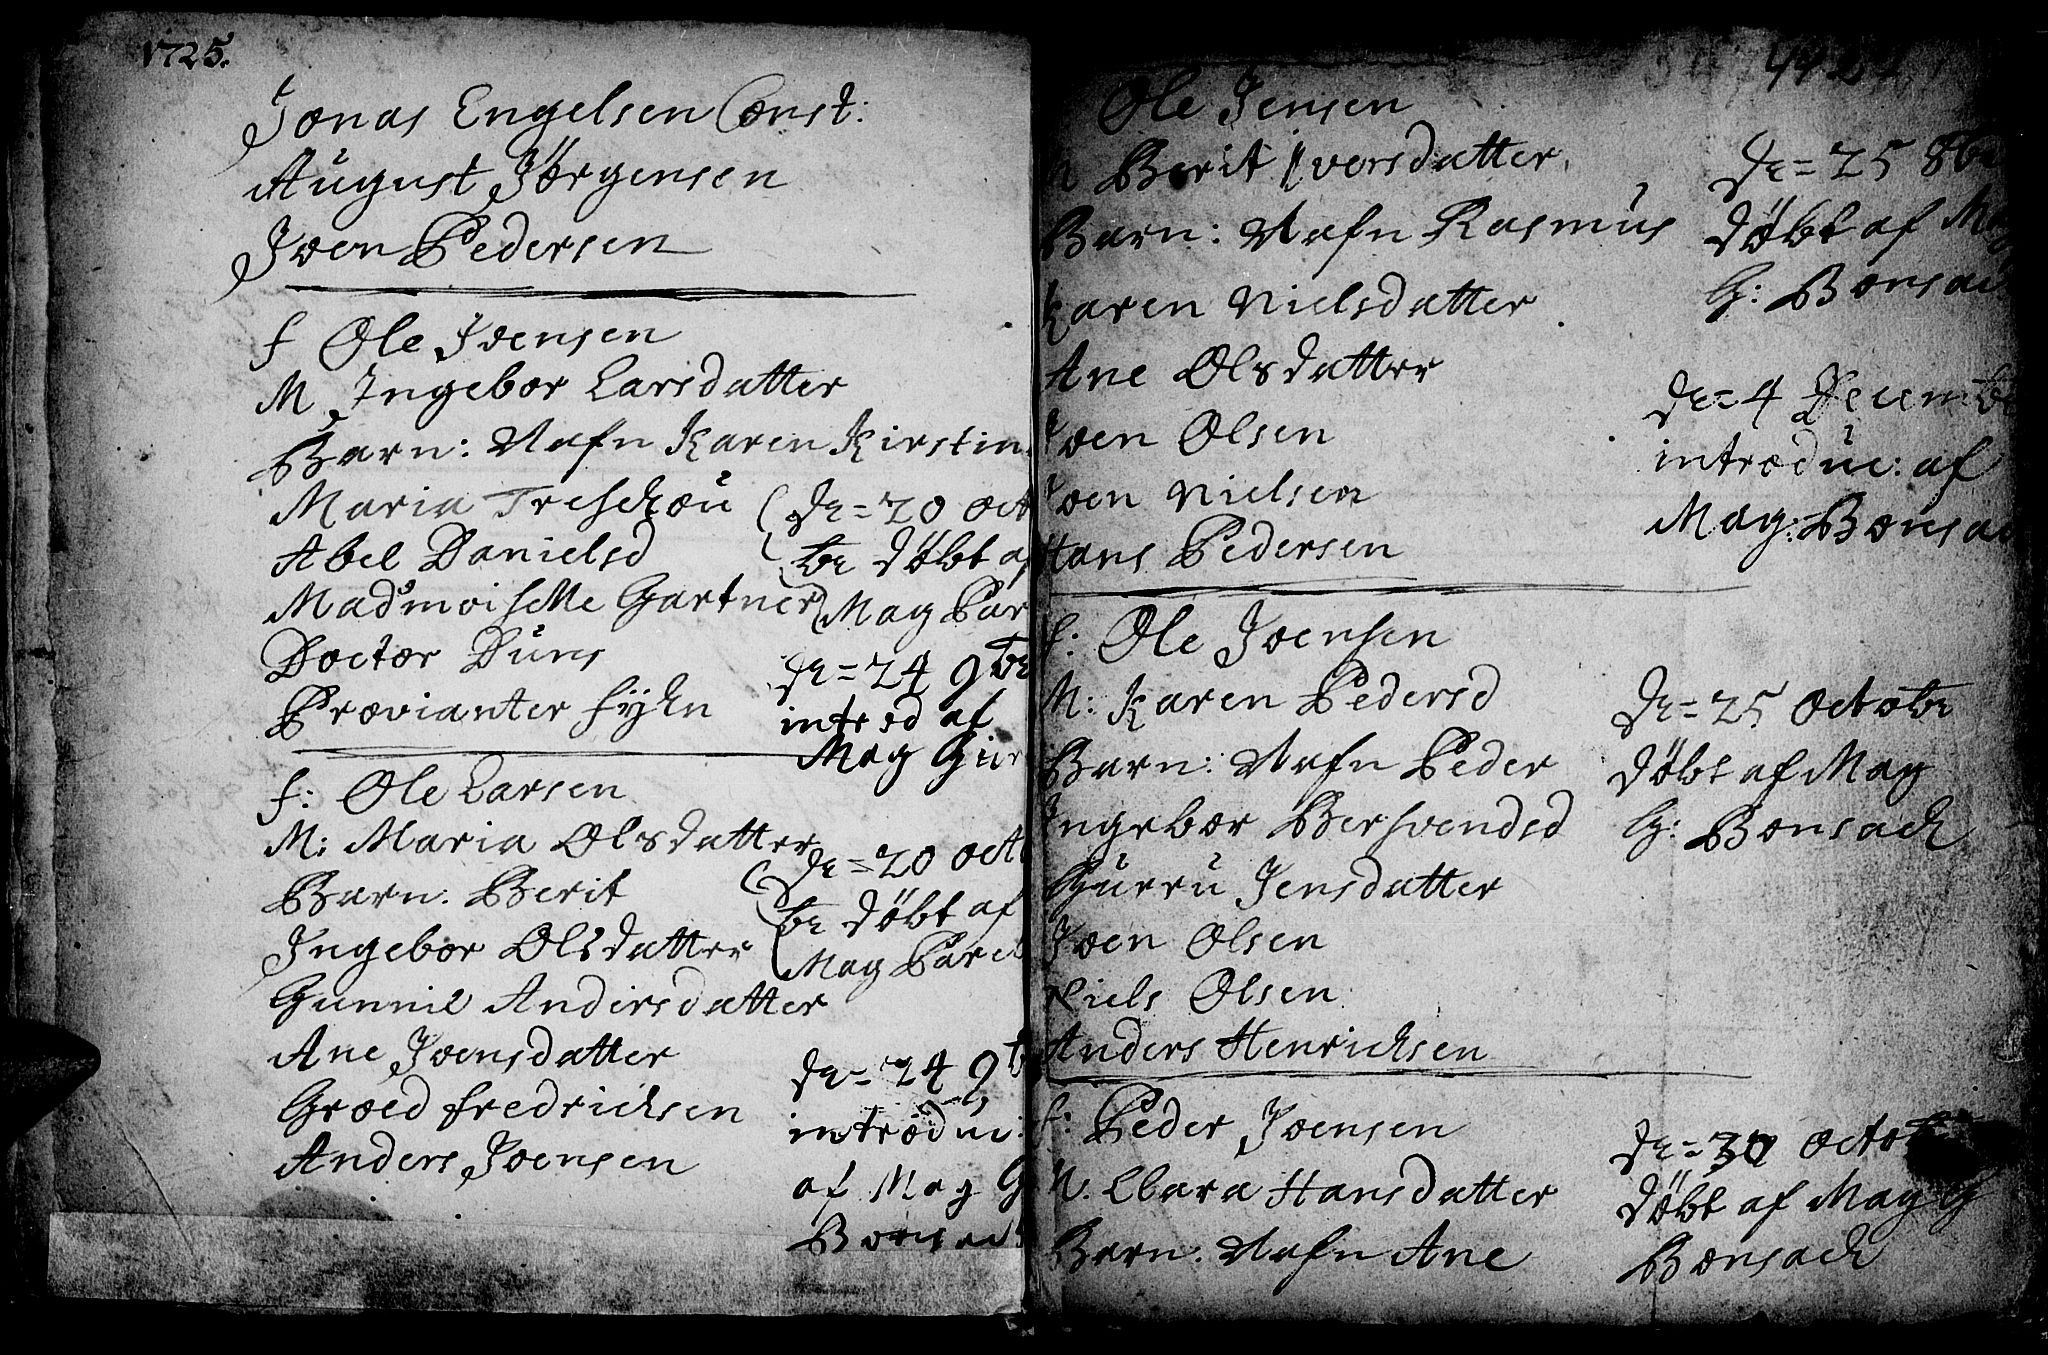 1725.
Jonas Engelsen Const:
August Jörgensen
Joen Pedersen
f Ole Joensen
M Ingebor Larsdatter
Barn: Nafn Karen Kirstin
Maria Treschou
Abel Danielsd
Madmoiselle Gartner
Doctor Duns
Provianter fykn
de = 20 oct
br døbt af
Mag Par
de = 24 9br
introd af
Mag Gur
f: Ole Larsen
M: Maria Olsdatter
Barn: Berit
Ingebor Olsdatter
Gunnil Andersdatter
Ane Joensdatter
Groed fredrichsen
Anders Joensen
de = 20 octo
br døbt af
Mag Pare
de = 24 9b
introduc:
af Mag G
Bonsach
Ole Jensen
M Berit Iversdatter
Barn: Nafn Rasmus
Karen Nielsdatter
Ane Olsdatter
Joen Olsen
Joen Nielsen
Hans Pedersen
de = 25 8br
døbt af Mag
G: Bonsach
de = 4 Decemb
introduc: af
Mag: Bonsac
f: Ole Joensen
M: Karen Pedersd
Barn: Nafn Peder
Ingebor Bersvendsd
Gurru Jensdatter
Joen Olsen
Niels Olsen
Anders Henrichsen
de = 25 octobr
døbt af Mag
G: Bonsach
f: Peder Joensen
M. Clara Hansdatter
Barn: Nafn Ane
de = 30 octob
døbt af Mag G
Bonsach